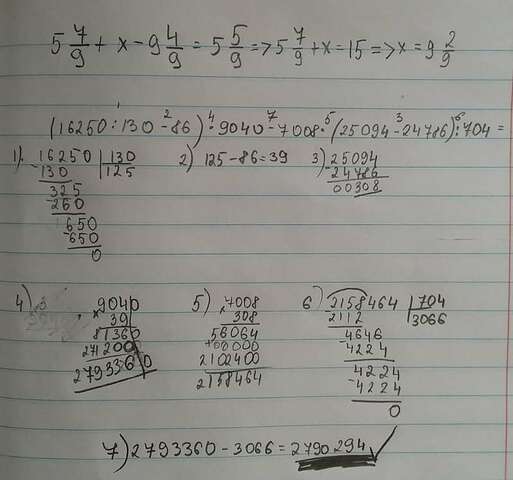 5 7/9 + x - 9 4/9 = 5 5/9 => 5 7/9 + x = 15 => x = 9 2/9
1 2 4 7 5 3 6
(16250:130-86)·9040-7008·(25094-24786):704=
1) 16250 | 130
-130 | 125
325
-260
650
-650
0
2) 125-86=39
3) -25094
24786
00308
4) 9040
×39
81360
271200
2793360
5) ×7008
308
56064
+00000
2102400
2158464
6) -2158464 | 704
2112 | 3066
4646
-4224
4224
-4224
0
7) 2793360-3066=2790294